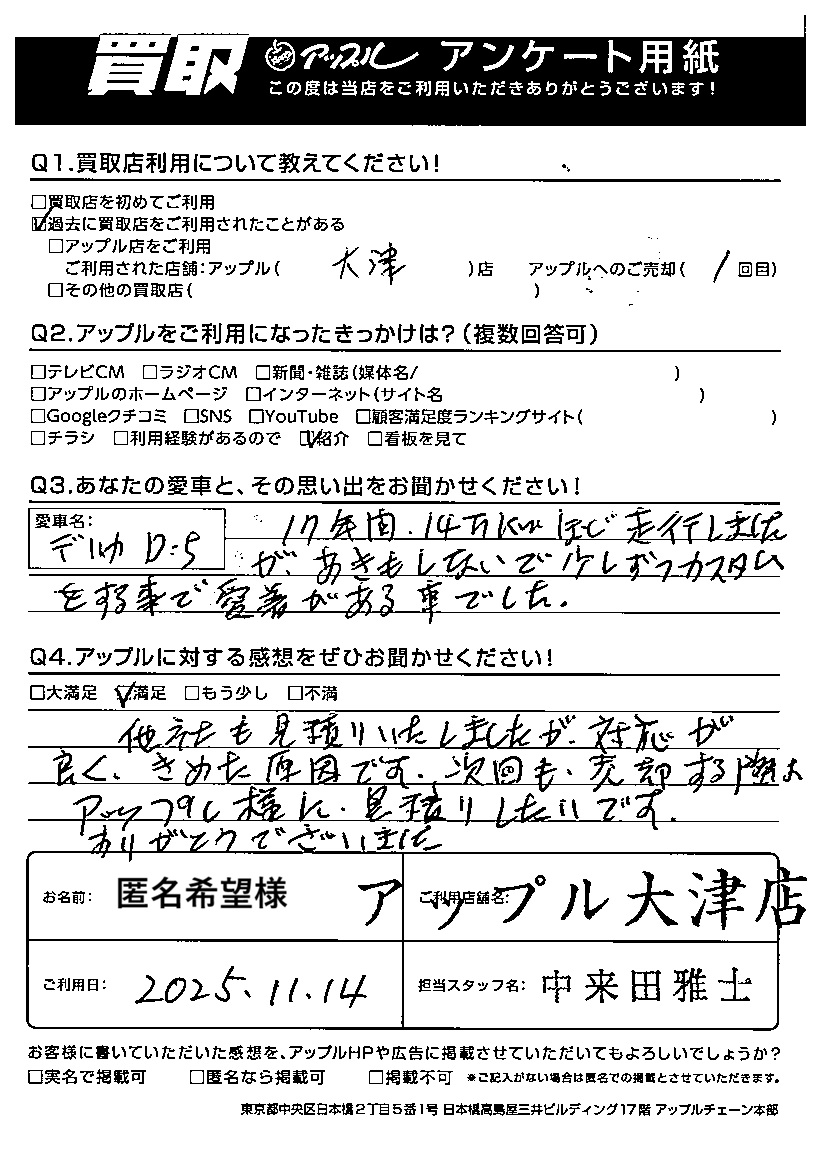 買取 アップル アンケート用紙
この度は当店をご利用いただきありがとうございます!
Q1.買取店利用について教えてください!
□買取店を初めてご利用
☑過去に買取店をご利用されたことがある
□アップル店をご利用
ご利用された店舗:アップル( 大津 )店 アップルへのご売却( 1 回目)
□その他の買取店( )
Q2.アップルをご利用になったきっかけは?(複数回答可)
□テレビCM □ラジオCM □新聞・雑誌(媒体名/ )
□アップルのホームページ □インターネット(サイト名 )
□Googleクチコミ □SNS □YouTube □顧客満足度ランキングサイト( )
□チラシ □利用経験があるので ☑紹介 □看板を見て
Q3.あなたの愛車と、その思い出をお聞かせください!
愛車名:
デリカ D:5
17年間、14万kmほど走行しました
が、あきもしないで少しずつカスタム
をする事で愛着がある車でした。
Q4.アップルに対する感想をぜひお聞かせください!
□大満足 ☑満足 □もう少し □不満
他社も見積りいたしましたが、対応が
良く、きめた原因です。次回も、売却する際は
アップル様に、見積りしたいです。
ありがとうございました
お名前: 匿名希望様 ご利用店舗名: アップル大津店
ご利用日: 2025.11.14 担当スタッフ名: 中来田雅士
お客様に書いていただいた感想を、アップルHPや広告に掲載させていただいてもよろしいでしょうか?
□実名で掲載可 □匿名なら掲載可 □掲載不可 *ご記入がない場合は匿名での掲載とさせていただきます。
東京都中央区日本橋2丁目5番1号 日本橋高島屋三井ビルディング17階 アップルチェーン本部